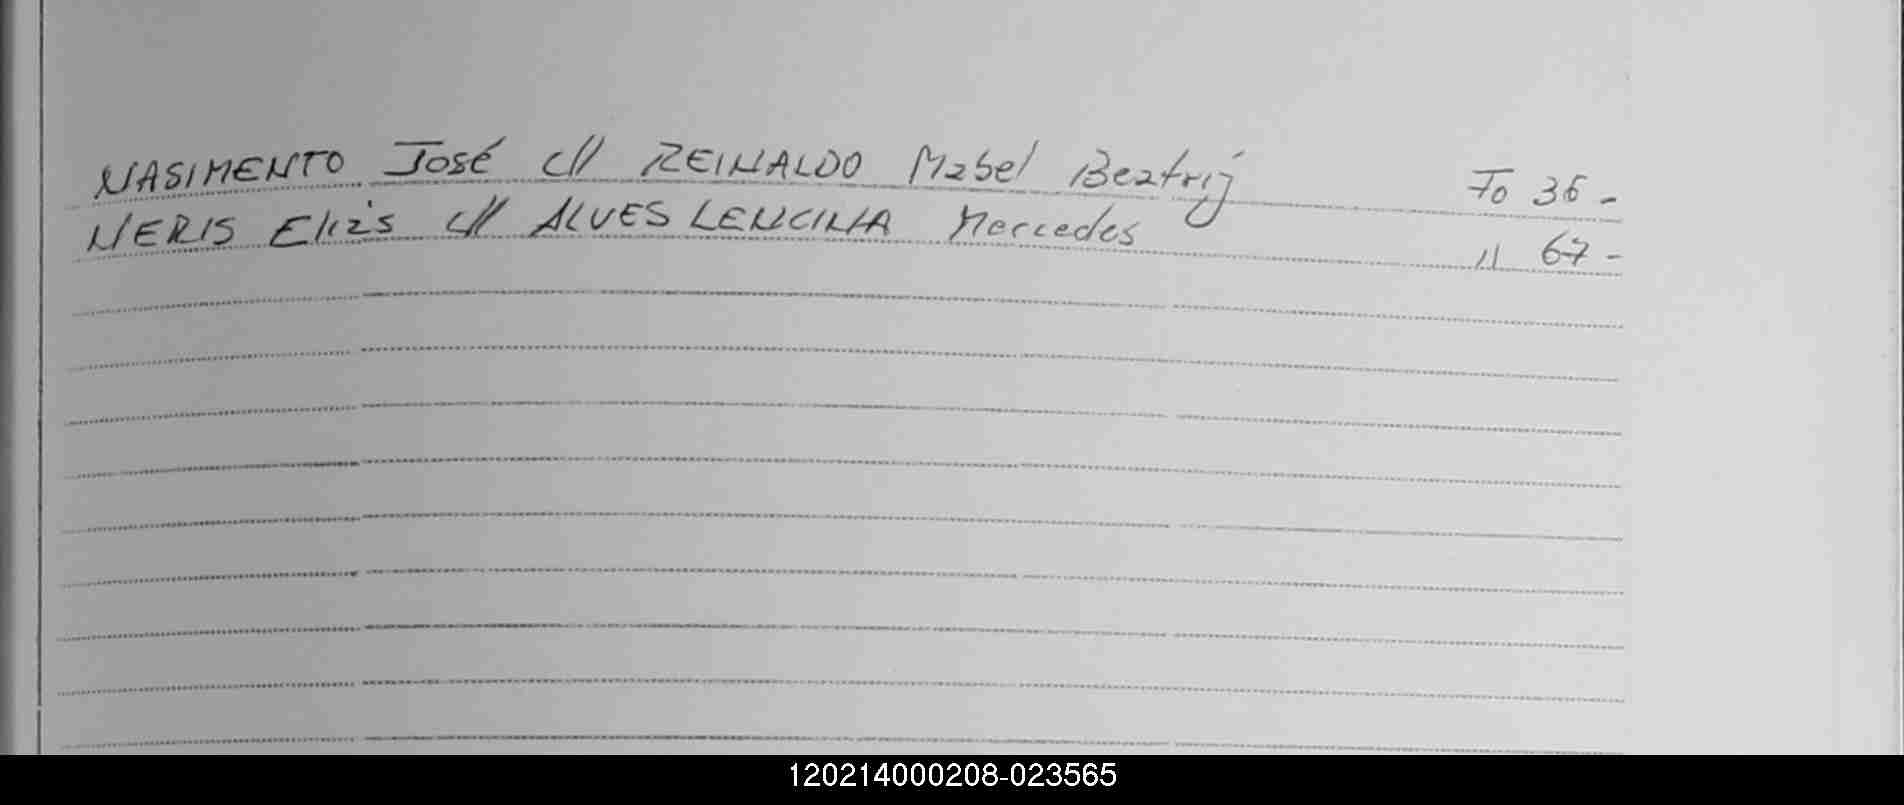 NASIMENTO José c// REINALDO Mabel Beatriz Fo 36-
NERIS Elías c// ALVES LENCINA Mercedes " 67-
120214000208-023565